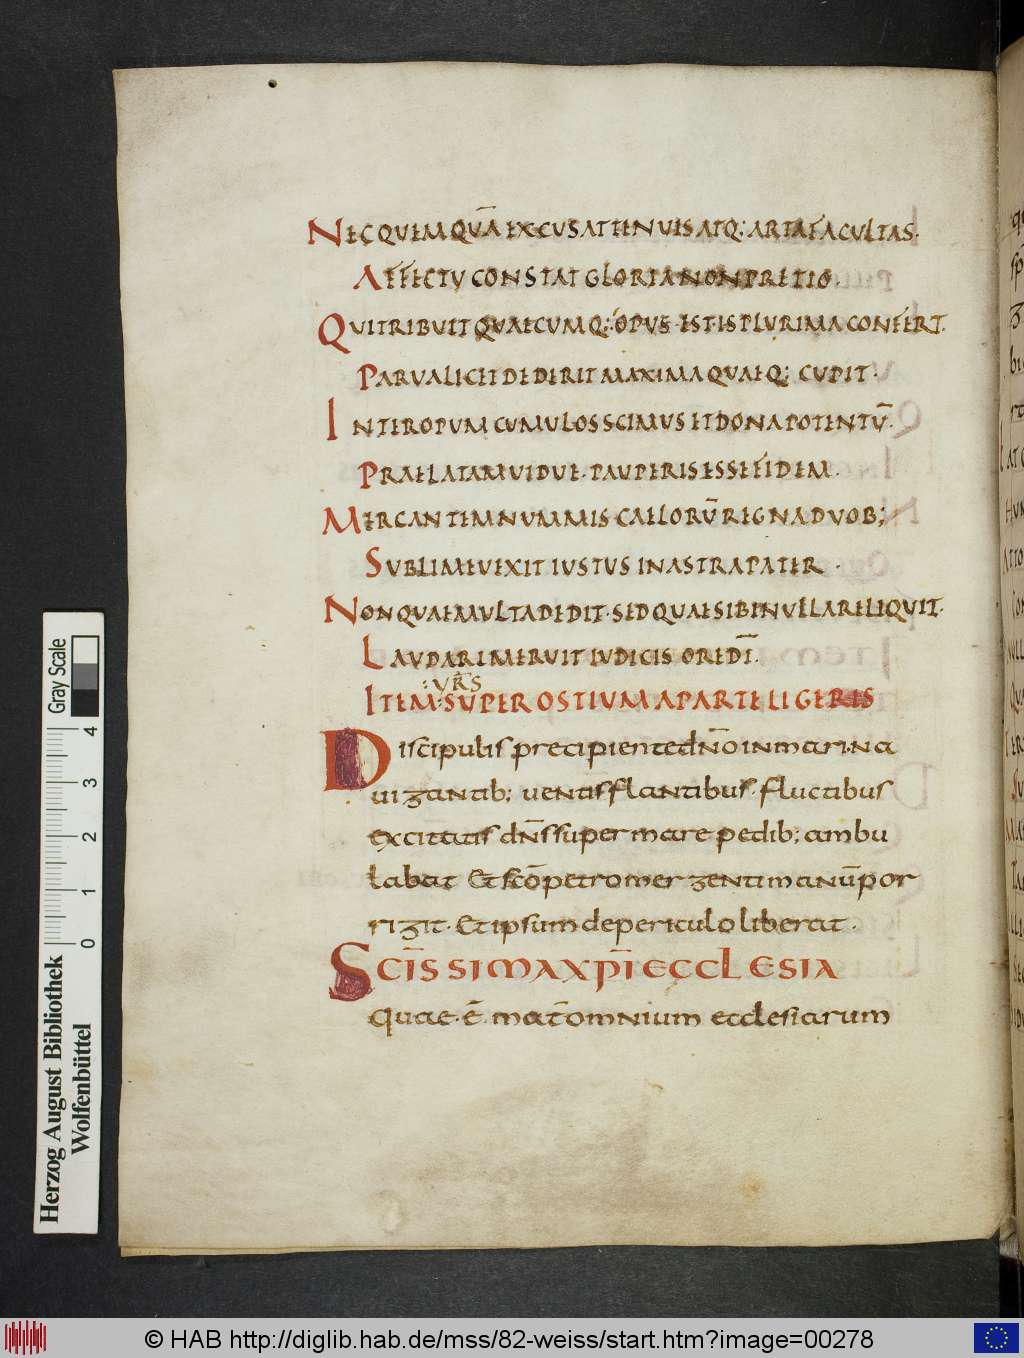 NECQUEMQUĀ EXCUSATTENUISATQ; ARTAFACULTAS·
AFFECTU CONSTAT GLORIANONPRETIO·
QUITRIBUITQUAECUMQ; OPUS· EST·ISPLURIMACONFERT·
PARUALICETDEDERITMAXIMAQUAEQ; CUPIT·
INTEROPUMCUMULOSSCIMUSETDONAPOTENTŪ·
PRAELATAMUIDUE·PAUPERISESSEFIDEM·
MERCANTEMNUMMISCAELORŪREGNADUOB;
SUBLIMEUEXIT IUSTUS INASTRAPATER·
NONQUAEMULTADEDIT·SEDQUAESIBINULLARELIQUIT·
LAUDARIMERUIT IUDICIS OREDĪ·
:UR̄S
ITEM:SUPER OSTIUMAPARTELIGERIS
Discipulis precipientedn̄oinmari·na
uigantib; uentisflantibus· fluctibus
excitatis dn̄ssupermare pedib; ambu
labat Etsc̄opetromergentimanūpor
rigit· Etipsumdepericuloliberat·
SCĪSSIMAXP̄IECCLESIA
quae·ē· mat̄omnium ecclesiarum
Gray Scale
4 3 2 1 0
Herzog August Bibliothek
Wolfenbüttel
© HAB http://diglib.hab.de/mss/82-weiss/start.htm?image=00278